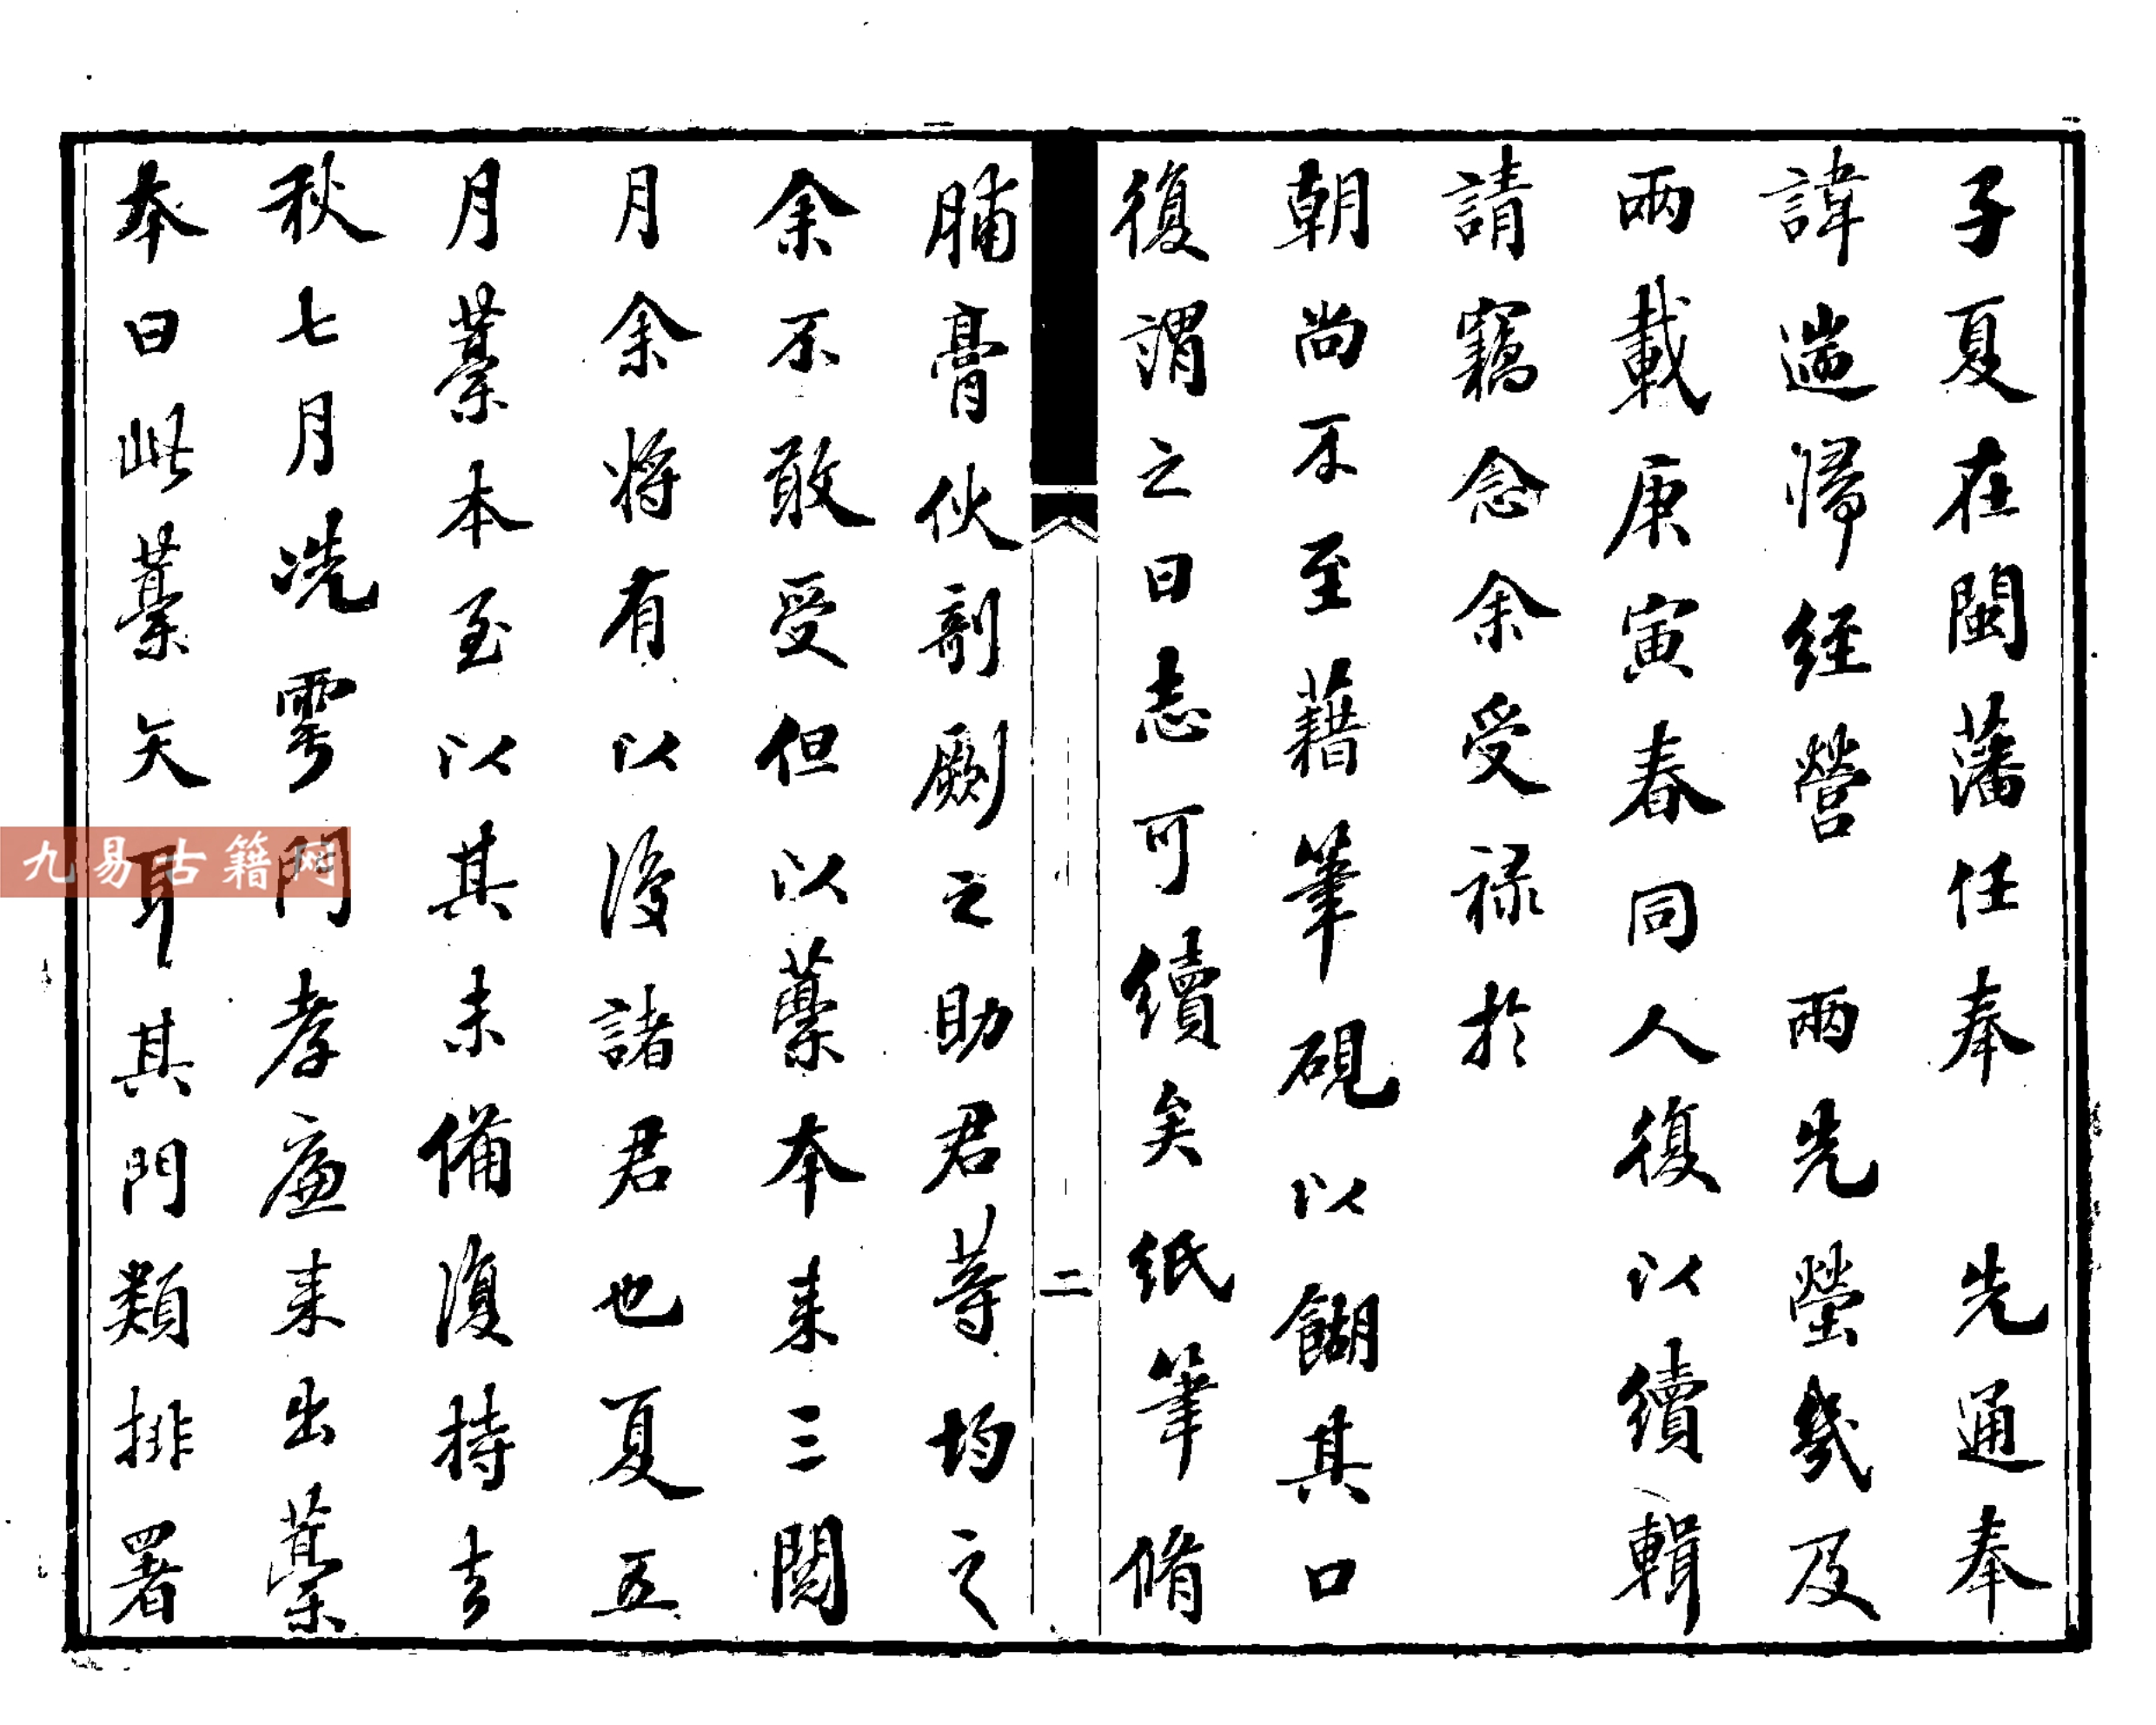 子夏在閩藩任奉 先通奉
諱遄歸經營 兩先塋幾及
兩載庚寅春同人復以續輯
請竊念余受祿於
朝尚不至藉筆硯以餬其口
復謂之曰志可續矣紙筆脩
脯膏伙剞劂之助君等均之
余不敢受但以藁本來三閱
月余將有以復諸君也夏五
月藁本至以其未備復持去
秋七月冼雩門孝廉來出藁
本曰此藁矢耳其門類排署
二
九易古籍网